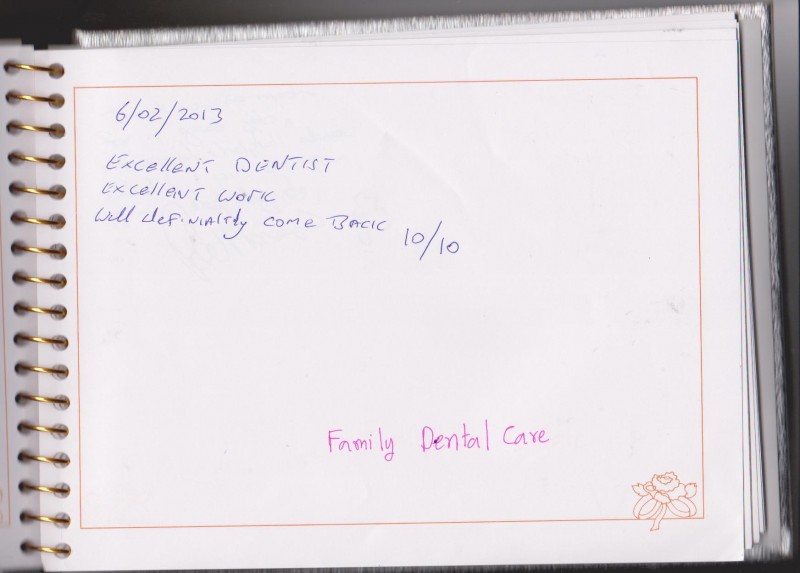 6/02/2013
Excellent DENTIST
Excellent work
Will definialtdy come Back
10/10
Family Dental Care